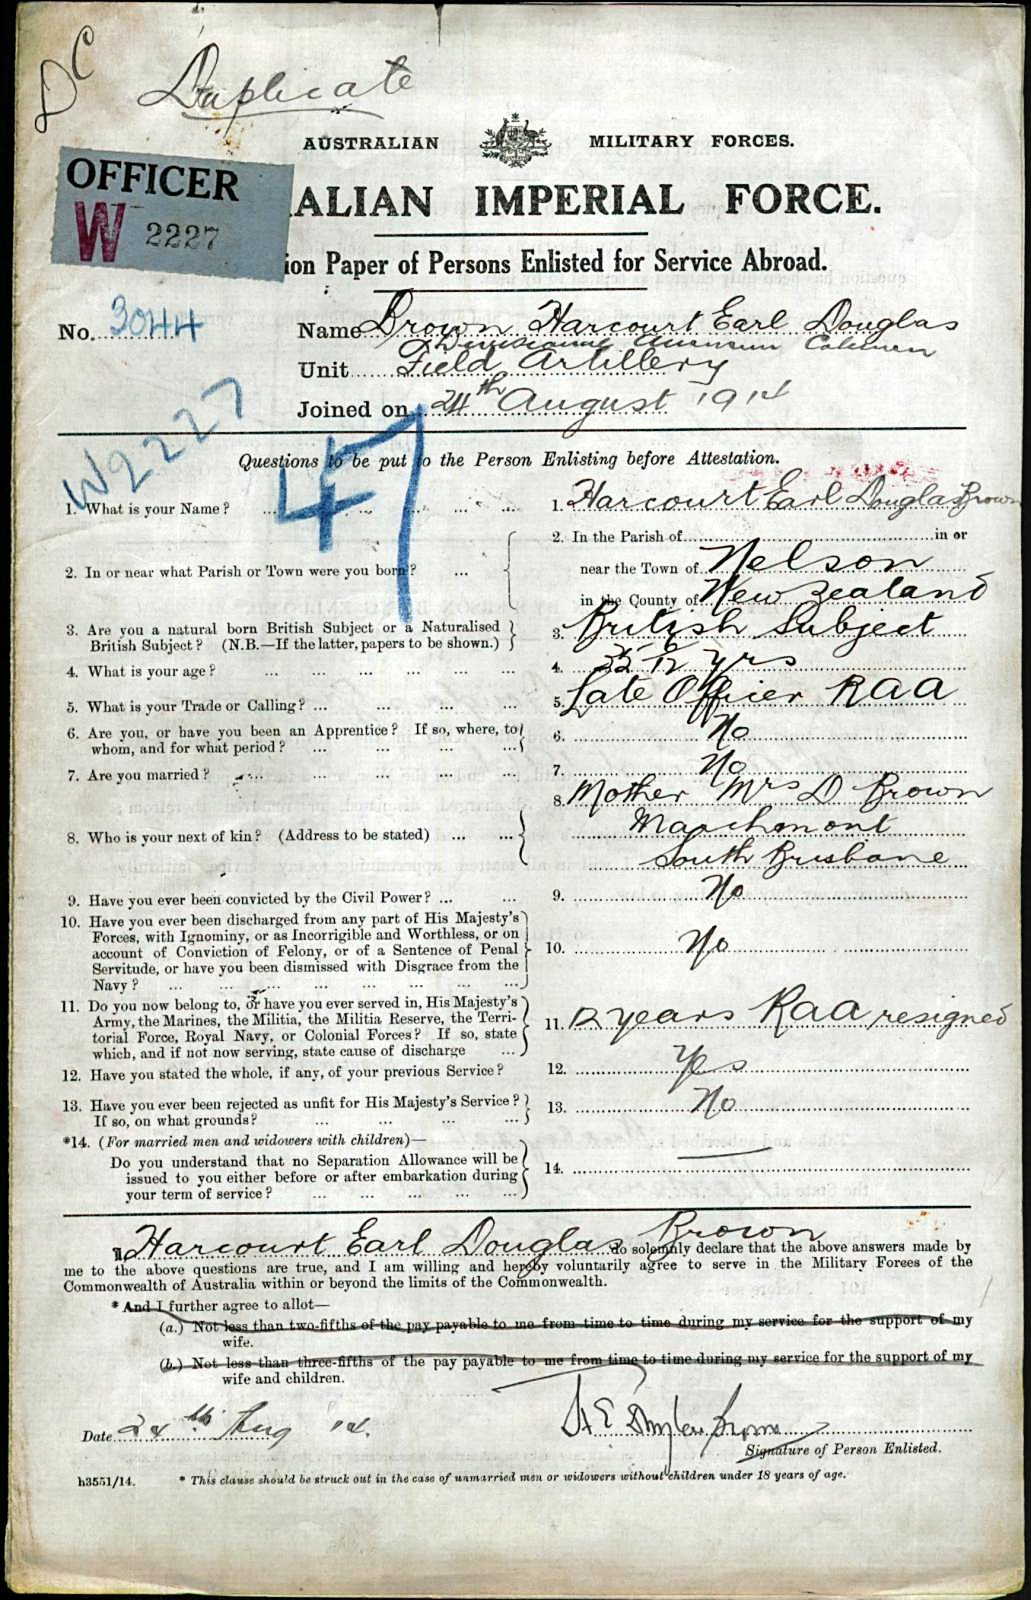 DC
Duplicate
AUSTRALIAN MILITARY FORCES.
OFFICER
W 2227
ALIAN IMPERIAL FORCE.
ion Paper of Persons Enlisted for Service Abroad.
No. 3044
Name Brown Harcourt Earl Douglas
Divisional Ammun Column
Unit Field Artillery
Joined on 24th August 1914
W2227
47
Questions to be put to the Person Enlisting before Attestation.
1. What is your Name? ... 1. Harcourt Earl Douglas Brown
2. In or near what Parish or Town were you born? ... 2. In the Parish of in or
near the Town of Nelson
in the County of New Zealand
3. Are you a natural born British Subject or a Naturalised
British Subject? (N.B.—If the latter, papers to be shown.) 3. British Subject
4. What is your age? ... 4. 35 yrs
5. What is your Trade or Calling? ... 5. Late Officer RAA
6. Are you, or have you been an Apprentice? If so, where, to
whom, and for what period? ... 6. No
7. Are you married? ... 7. No
8. Who is your next of kin? (Address to be stated) ... 8. Mother Mrs D Brown
Marchmont
South Brisbane
9. Have you ever been convicted by the Civil Power? ... 9. No
10. Have you ever been discharged from any part of His Majesty's
Forces, with Ignominy, or as Incorrigible and Worthless, or on
account of Conviction of Felony, or of a Sentence of Penal
Servitude, or have you been dismissed with Disgrace from the
Navy? ... 10. No
11. Do you now belong to, or have you ever served in, His Majesty's
Army, the Marines, the Militia, the Militia Reserve, the Terri-
torial Force, Royal Navy, or Colonial Forces? If so, state
which, and if not now serving, state cause of discharge ... 11. 12 years RAA resigned
12. Have you stated the whole, if any, of your previous Service? 12. Yes
13. Have you ever been rejected as unfit for His Majesty's Service?
If so, on what grounds? ... 13. No
*14. (For married men and widowers with children)—
Do you understand that no Separation Allowance will be
issued to you either before or after embarkation during
your term of service? ... 14. —
I Harcourt Earl Douglas Brown do solemnly declare that the above answers made by
me to the above questions are true, and I am willing and hereby voluntarily agree to serve in the Military Forces of the
Commonwealth of Australia within or beyond the limits of the Commonwealth.
* And I further agree to allot—
(a.) Not less than two-fifths of the pay payable to me from time to time during my service for the support of my
wife.
(b.) Not less than three-fifths of the pay payable to me from time to time during my service for the support of my
wife and children.
Date 24th Aug 14.
H E Douglas Brown
Signature of Person Enlisted.
h3551/14.
* This clause should be struck out in the case of unmarried men or widowers without children under 18 years of age.